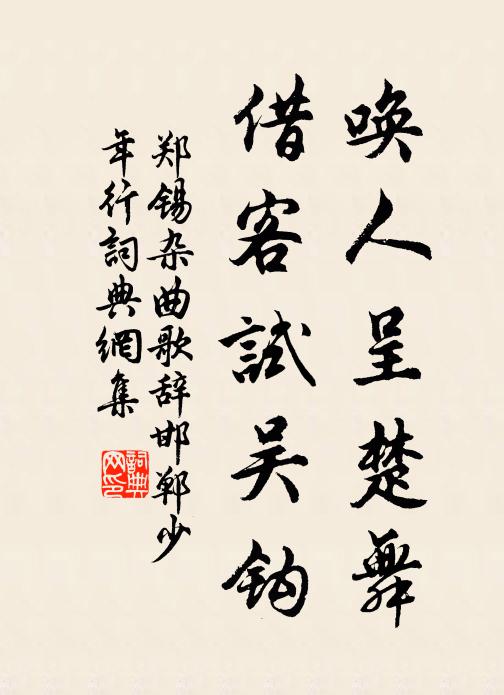 唤人呈楚舞
借客試吴钩
郑锡杂曲歌辞邯郸少
年行詞典網集
詞典网印